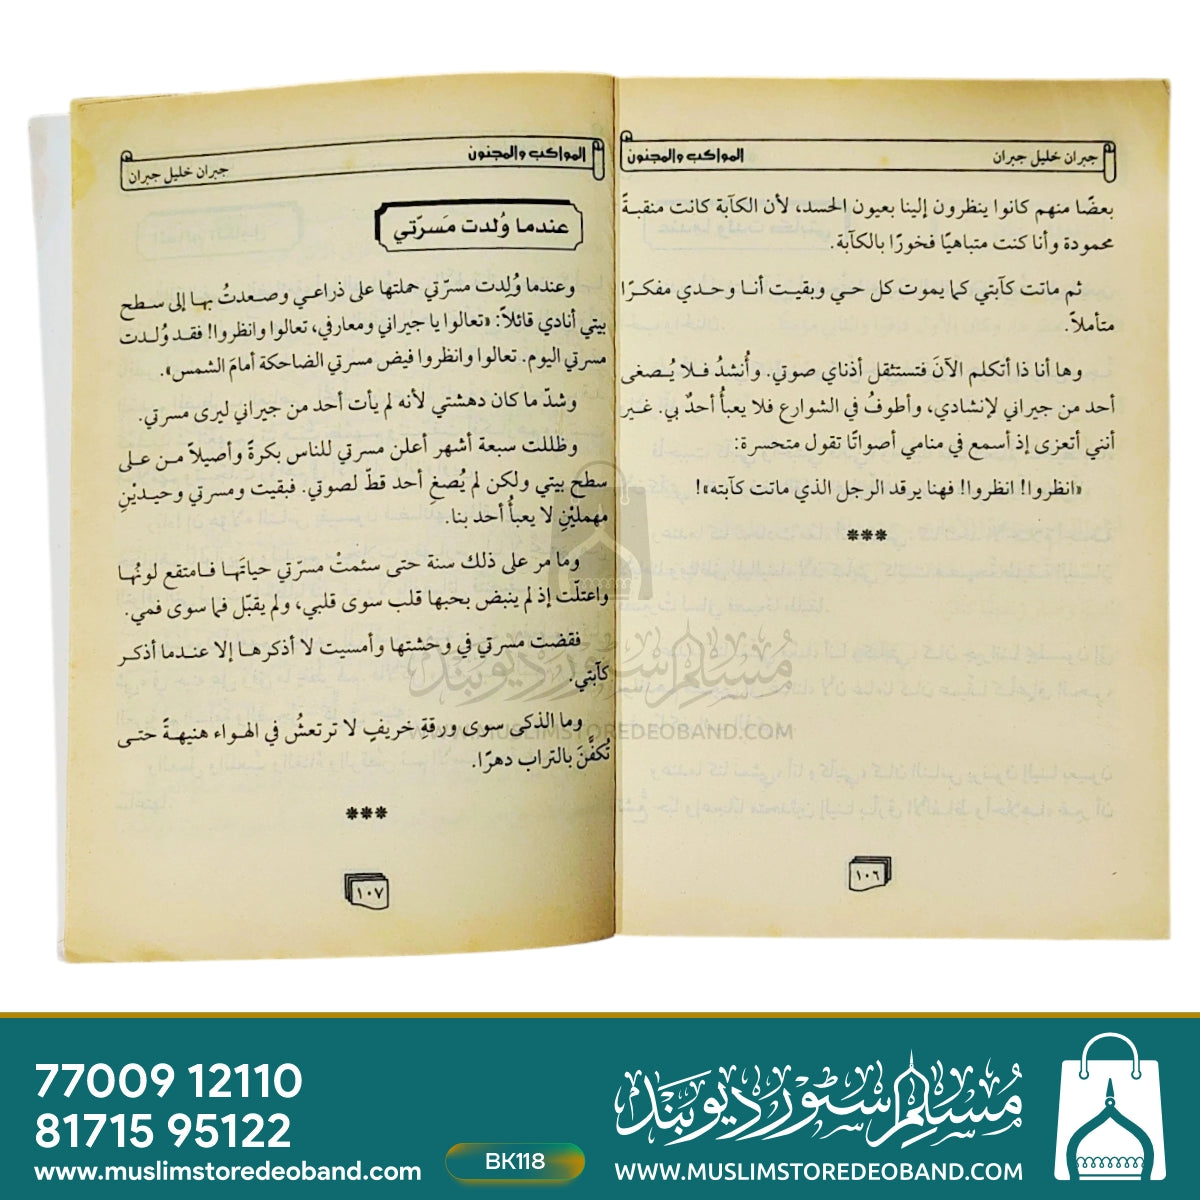 جبران خليل جبران
المواكب والمجنون
بعضًا منهم كانوا ينظرون إلينا بعيون الحسد، لأن الكآبة كانت منقبةً
محمودة وأنا كنت متباهيًا فخورًا بالكآبة.
ثم ماتت كآبتي كما يموت كل حي وبقيت أنا وحدي مفكرًا
متأملاً.
وها أنا ذا أتكلم الآنَ فتستثقل أذناي صوتي. وأُنشدُ فلا يُصغى
أحد من جيراني لإنشادي، وأطوفُ في الشوارع فلا يعبأُ أحدٌ بي. غير
أنني أتعزى إذ أسمع في منامي أصواتًا تقول متحسرة:
«انظروا! انظروا! فهنا يرقد الرجل الذي ماتت كآبته»!
***
١٠٦
المواكب والمجنون
جبران خليل جبران
عندما وُلدت مَسرّتي
وعندما وُلِدت مسرّتي حملتها على ذراعي وصعدتُ بها إلى سطح
بيتي أنادي قائلاً: «تعالوا يا جيراني ومعارفي، تعالوا وانظروا! فقد وُلدت
مسرتي اليوم. تعالوا وانظروا فيض مسرتي الضاحكة أمامَ الشمس».
وشدّ ما كان دهشتي لأنه لم يأت أحد من جيراني ليرى مسرتي.
وظللت سبعة أشهر أعلن مسرتي للناس بكرةً وأصيلاً من على
سطح بيتي ولكن لم يُصغِ أحد قطّ لصوتي. فبقيت ومسرتي وحيديْنِ
مهمليْنِ لا يعبأُ أحد بنا.
وما مر على ذلك سنة حتى سئمتْ مسرّتي حياتَها فامتقع لونُها
واعتلّت إذ لم ينبض بحبها قلب سوى قلبي، ولم يقبّل فما سوى فمي.
فقضت مسرتي في وحشتها وأمسيت لا أذكرها إلا عندما أذكر
كآبتي.
وما الذكى سوى ورقةِ خريفٍ لا ترتعشُ في الهواء هنيهةً حتى
تُكفَّنَ بالتراب دهرًا.
***
١٠٧
مُسلم سٹور دیوبند
WWW.MUSLIMSTOREDEOBAND.COM
77009 12110
81715 95122
www.muslimstoredeoband.com
BK118
مُسلم سٹور دیوبند
WWW.MUSLIMSTOREDEOBAND.COM